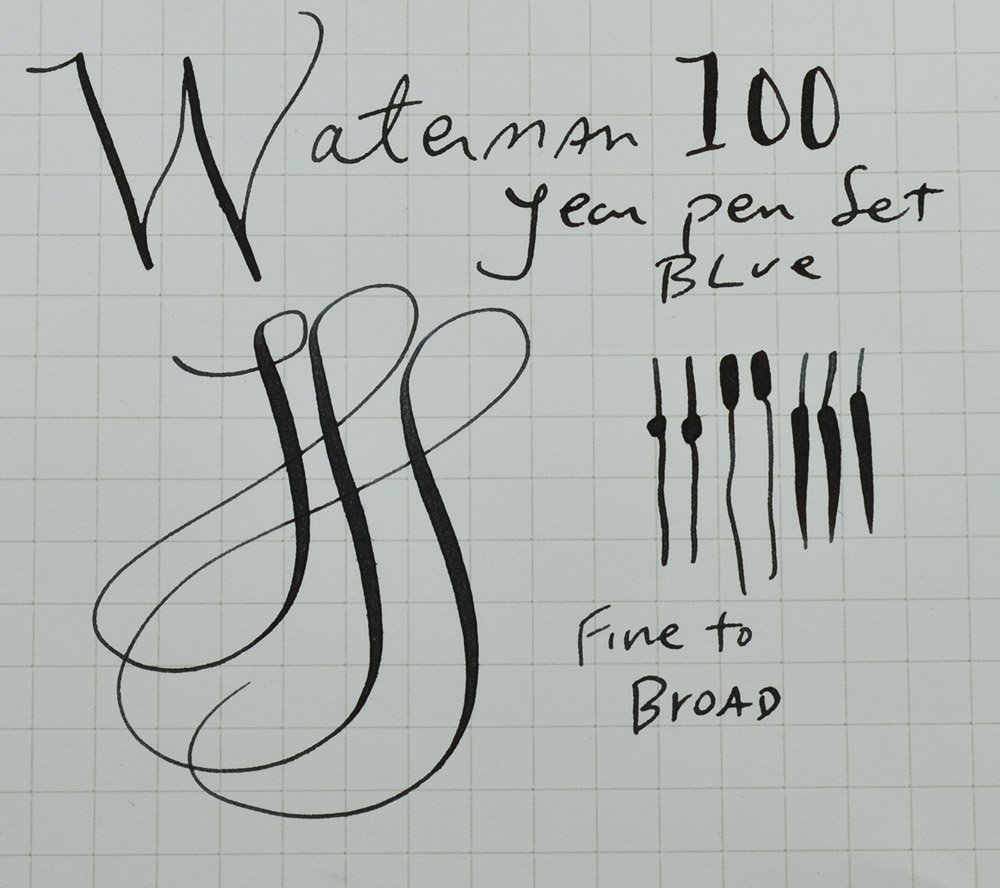 Waterman 100
year pen Set
BLue
Fine to
BroAD